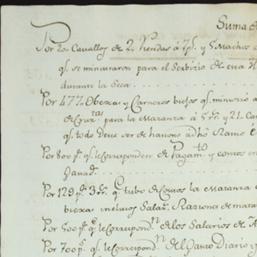 Suma
Por 20 Cavallos de 2 Riendas à 7 ps. y Machos
qe. se minoraron para el Servicio de esta
durante la Seca
Por 477 Obejas y Carneros biejos qe. minorio
de Quartas para la Matanza à 5 rrs. y 21 Ca
qs. todo deve ser de havono adho Ramo
Por 800 ps. qe. le corresponden de Pagamto
Ganad.
Por 129 ps. 3 rrs. qe. tubo de Costos la Matanza
biexas inclusos Salars. Raziones de
Por 500 ps. qe. le Correspondn. de los Salarios de
Por 700 ps. qe. le correspondn. del Gasto Diario y